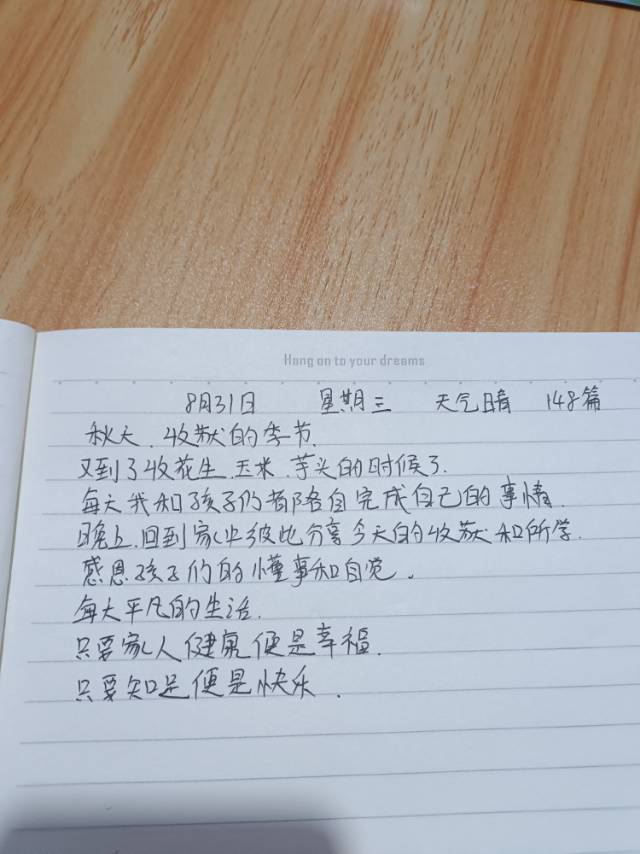 Hang on to your dreams
8月31日 星期三 天气晴 148篇
秋天、收获的季节.
又到了收花生、玉米、芋头的时候了.
每天我和孩子们都陪自完成自己的事情.
晚上.回到家中彼此分享今天的收获和所学.
感恩孩子们的懂事和自觉.
每天平凡的生活.
只要家人健康便是幸福.
只要知足便是快乐.